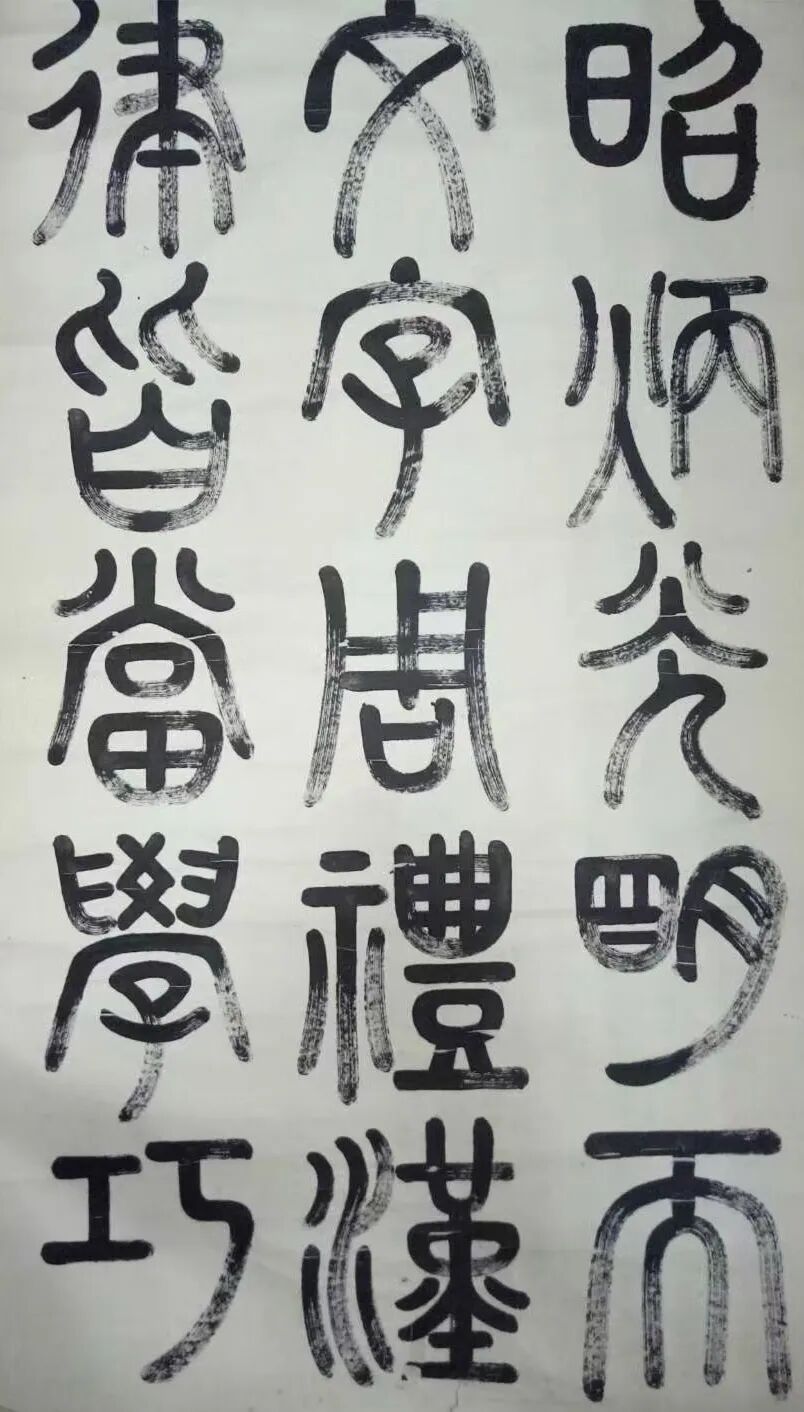 昭炳光明而
文字周禮漢
律皆當學巧